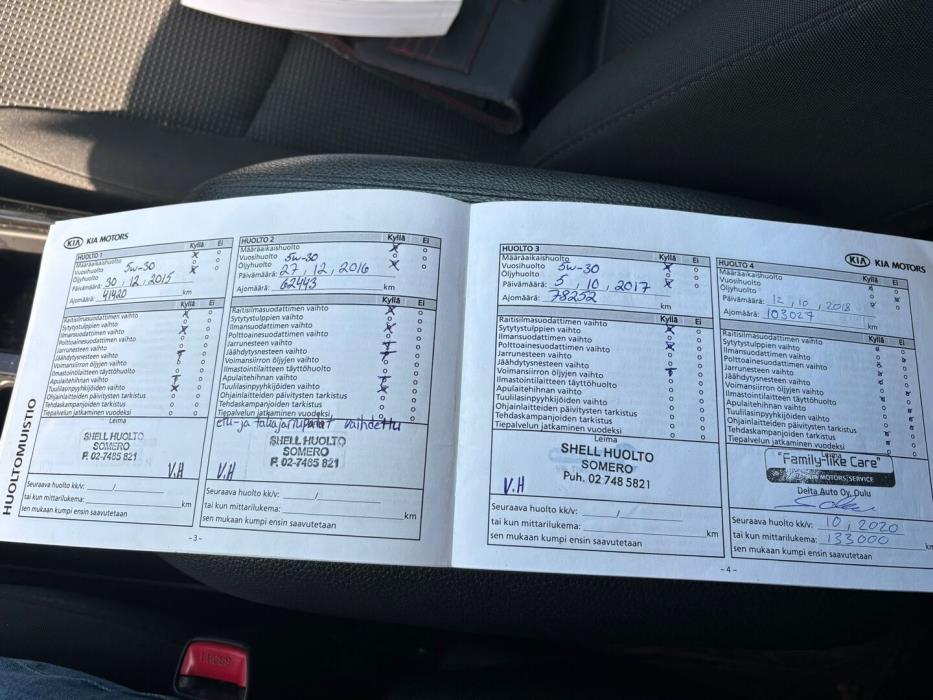 HUOLTOMUISTIO
KIA KIA MOTORS
HUOLTO 1 Kyllä Ei
Määräaikaishuolto
Vuosihuolto
Öljyhuolto 5w-30
Päivämäärä: 30 , 12 , 2015
Ajomäärä: 41420 km
Raitisilmasuodattimen vaihto
Sytytystulppien vaihto
Ilmansuodattimen vaihto
Polttoainesuodattimen vaihto
Jarrunesteen vaihto
Jäähdytysnesteen vaihto T
Voimansiirron öljyjen vaihto
Ilmastointilaitteen täyttöhuolto
Apulaitehihnan vaihto T
Tuulilasinpyyhkijöiden vaihto
Ohjainlaitteiden päivitysten tarkistus
Tehdaskampanjoiden tarkistus
Tiepalvelun jatkaminen vuodeksi
Leima
SHELL HUOLTO
SOMERO
P. 02-7485 821
V.H
Seuraava huolto kk/v: /
tai kun mittarilukema: km
sen mukaan kumpi ensin saavutetaan
-3-
HUOLTO 2 Kyllä Ei
Määräaikaishuolto
Vuosihuolto
Öljyhuolto 5w-30
Päivämäärä: 27 , 12 , 2016
Ajomäärä: 62443 km
Raitisilmasuodattimen vaihto
Sytytystulppien vaihto
Ilmansuodattimen vaihto
Polttoainesuodattimen vaihto
Jarrunesteen vaihto T
Jäähdytysnesteen vaihto T
Voimansiirron öljyjen vaihto
Ilmastointilaitteen täyttöhuolto
Apulaitehihnan vaihto
Tuulilasinpyyhkijöiden vaihto
Ohjainlaitteiden päivitysten tarkistus
Tehdaskampanjoiden tarkistus
Tiepalvelun jatkaminen vuodeksi
etu-ja takajarrupalat vaihdettu
SHELL HUOLTO
SOMERO
P. 02-7485 821
V.H
Seuraava huolto kk/v: /
tai kun mittarilukema: km
sen mukaan kumpi ensin saavutetaan
HUOLTO 3 Kyllä Ei
Määräaikaishuolto
Vuosihuolto
Öljyhuolto 5w-30
Päivämäärä: 5 , 10 , 2017
Ajomäärä: 78252 km
Raitisilmasuodattimen vaihto
Sytytystulppien vaihto
Ilmansuodattimen vaihto
Polttoainesuodattimen vaihto
Jarrunesteen vaihto
Jäähdytysnesteen vaihto
Voimansiirron öljyjen vaihto T
Ilmastointilaitteen täyttöhuolto
Apulaitehihnan vaihto
Tuulilasinpyyhkijöiden vaihto
Ohjainlaitteiden päivitysten tarkistus
Tehdaskampanjoiden tarkistus
Tiepalvelun jatkaminen vuodeksi
Leima
SHELL HUOLTO
SOMERO
Puh. 02 748 5821
V.H
Seuraava huolto kk/v: /
tai kun mittarilukema: km
sen mukaan kumpi ensin saavutetaan
-4-
KIA KIA MOTORS
HUOLTO 4 Kyllä Ei
Määräaikaishuolto
Vuosihuolto
Öljyhuolto
Päivämäärä: 12 , 10 , 2018
Ajomäärä: 103027 km
Raitisilmasuodattimen vaihto
Sytytystulppien vaihto
Ilmansuodattimen vaihto
Polttoainesuodattimen vaihto
Jarrunesteen vaihto
Jäähdytysnesteen vaihto
Voimansiirron öljyjen vaihto
Ilmastointilaitteen täyttöhuolto
Apulaitehihnan vaihto
Tuulilasinpyyhkijöiden vaihto
Ohjainlaitteiden päivitysten tarkistus
Tehdaskampanjoiden tarkistus
Tiepalvelun jatkaminen vuodeksi
Leima
"Family-like Care"
KIA MOTORS SERVICE
Delta Auto Oy, Oulu
Seuraava huolto kk/v: 10 , 2020
tai kun mittarilukema: 133000 km
sen mukaan kumpi ensin saavutetaan
PRESS